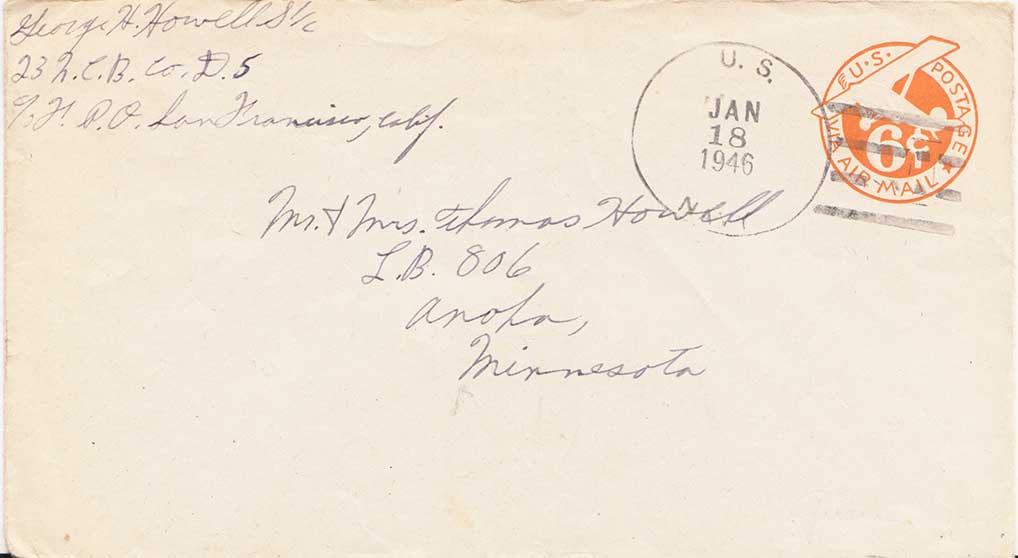 George H. Howell S1/c
23 N.C.B. Co. D.5
c/o F.P.O. San Francisco, Calif.
U.S.
JAN
18
1946
N
U.S. POSTAGE
6¢
VIA AIR-MAIL
Mr. & Mrs. Thomas Howell
L.B. 806
Anoka,
Minnesota